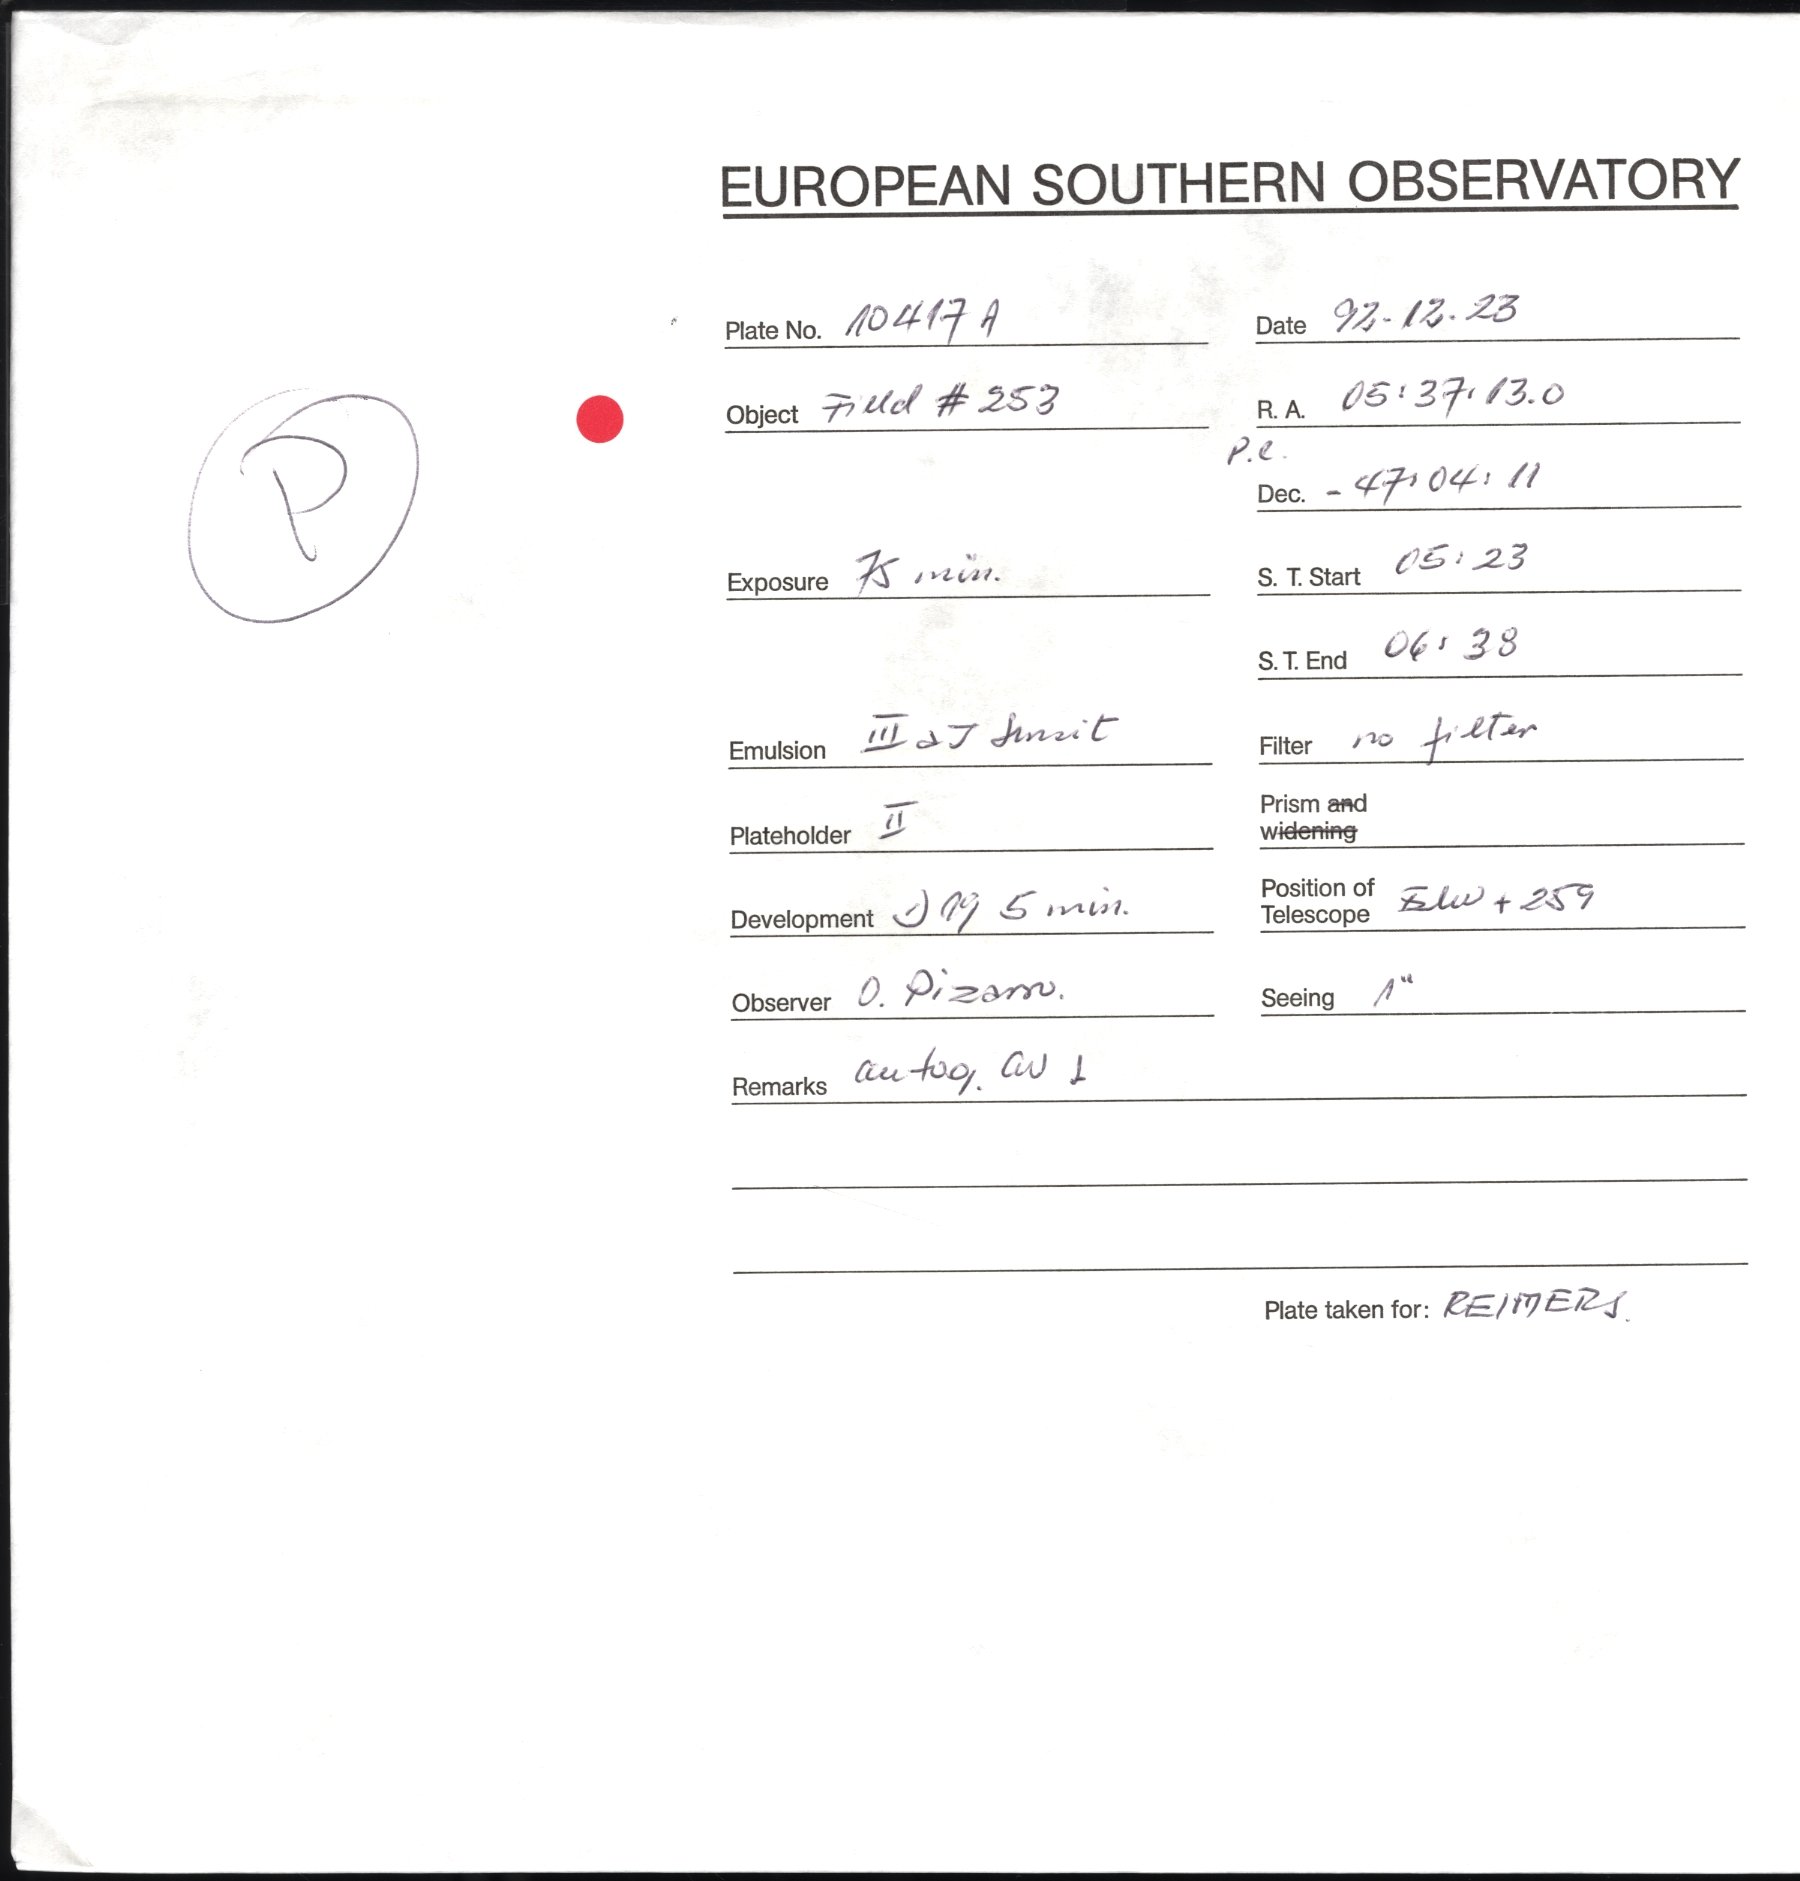 EUROPEAN SOUTHERN OBSERVATORY
Plate No. 10417 A
Date 92-12-23
Object Field # 253
R. A. 05:37:13.0
P
p.e.
Dec. - 47:04:11
Exposure 75 min.
S. T. Start 05:23
S. T. End 06:38
Emulsion III aJ sensit
Filter no filter
Plateholder II
Prism and
widening
Development D 19 5 min.
Position of
Telescope + 259
Observer O. Pizarro.
Seeing 1"
Remarks autog.
Plate taken for: REIMERS.